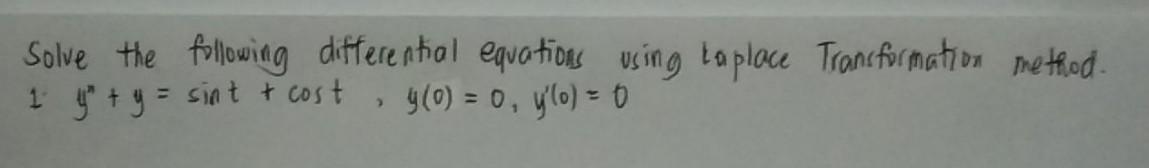 Solve the following differential equations using Laplace Transformation method.
1. y" + y = sin t + cos t , y(0) = 0, y'(0) = 0